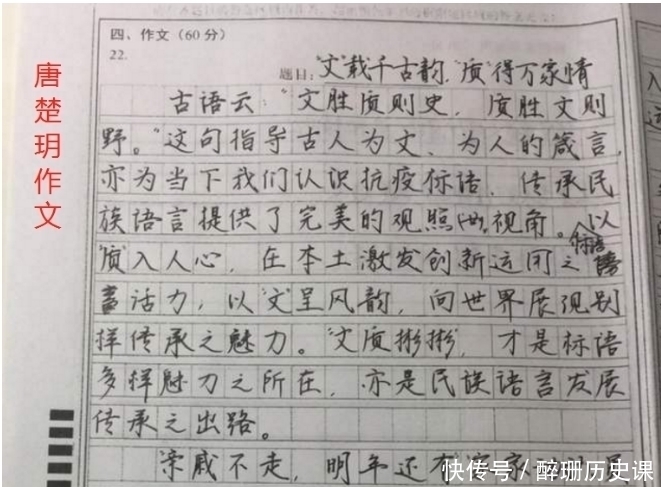 四、作文（60分）
22.
题目："文"载千古韵，"质"得万家情
古语云："文胜质则史，质胜文则
野。"这句指导古人为文、为人的箴言，
亦为当下我们认识抗疫标语、传承民
族语言提供了完美的观照视角。以
"质"入人心，在本土激发创新运用之标语
活力，以"文"呈风韵，向世界展现别
样传承之魅力。"文质彬彬"，才是标语
多样魅力之所在，亦是民族语言发展
传承之出路。
"亲戚不走，明年还有
唐楚玥作文
快传号／醉珊历史课